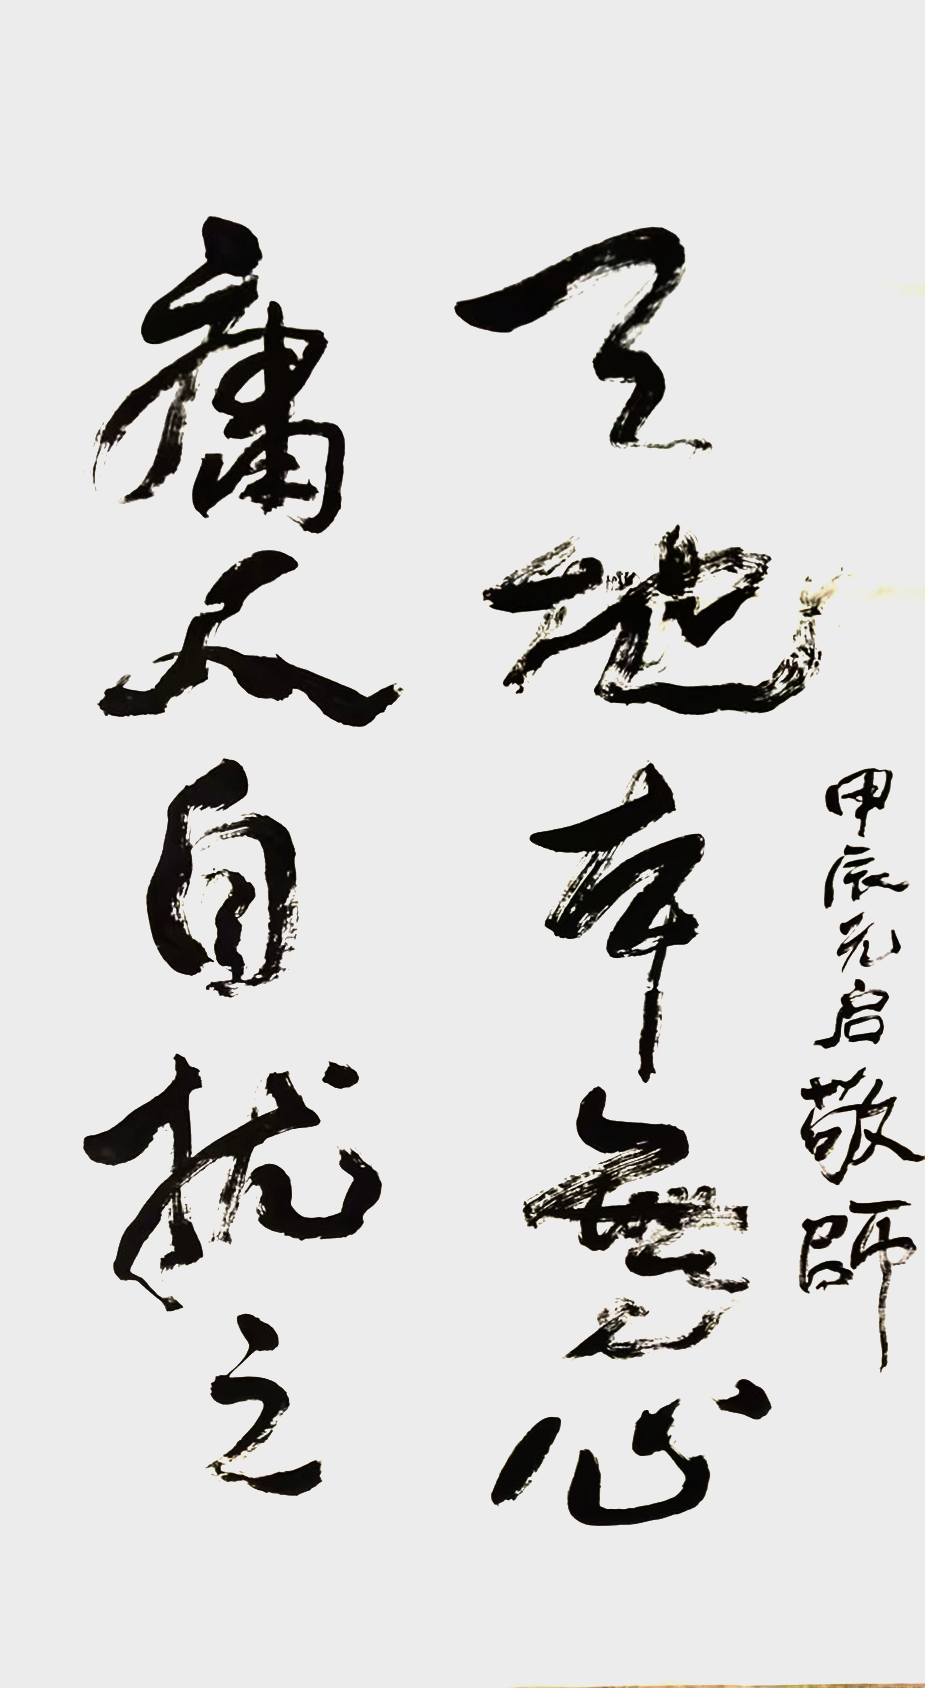 甲辰元启敬師
天地本無心
庸人自扰之